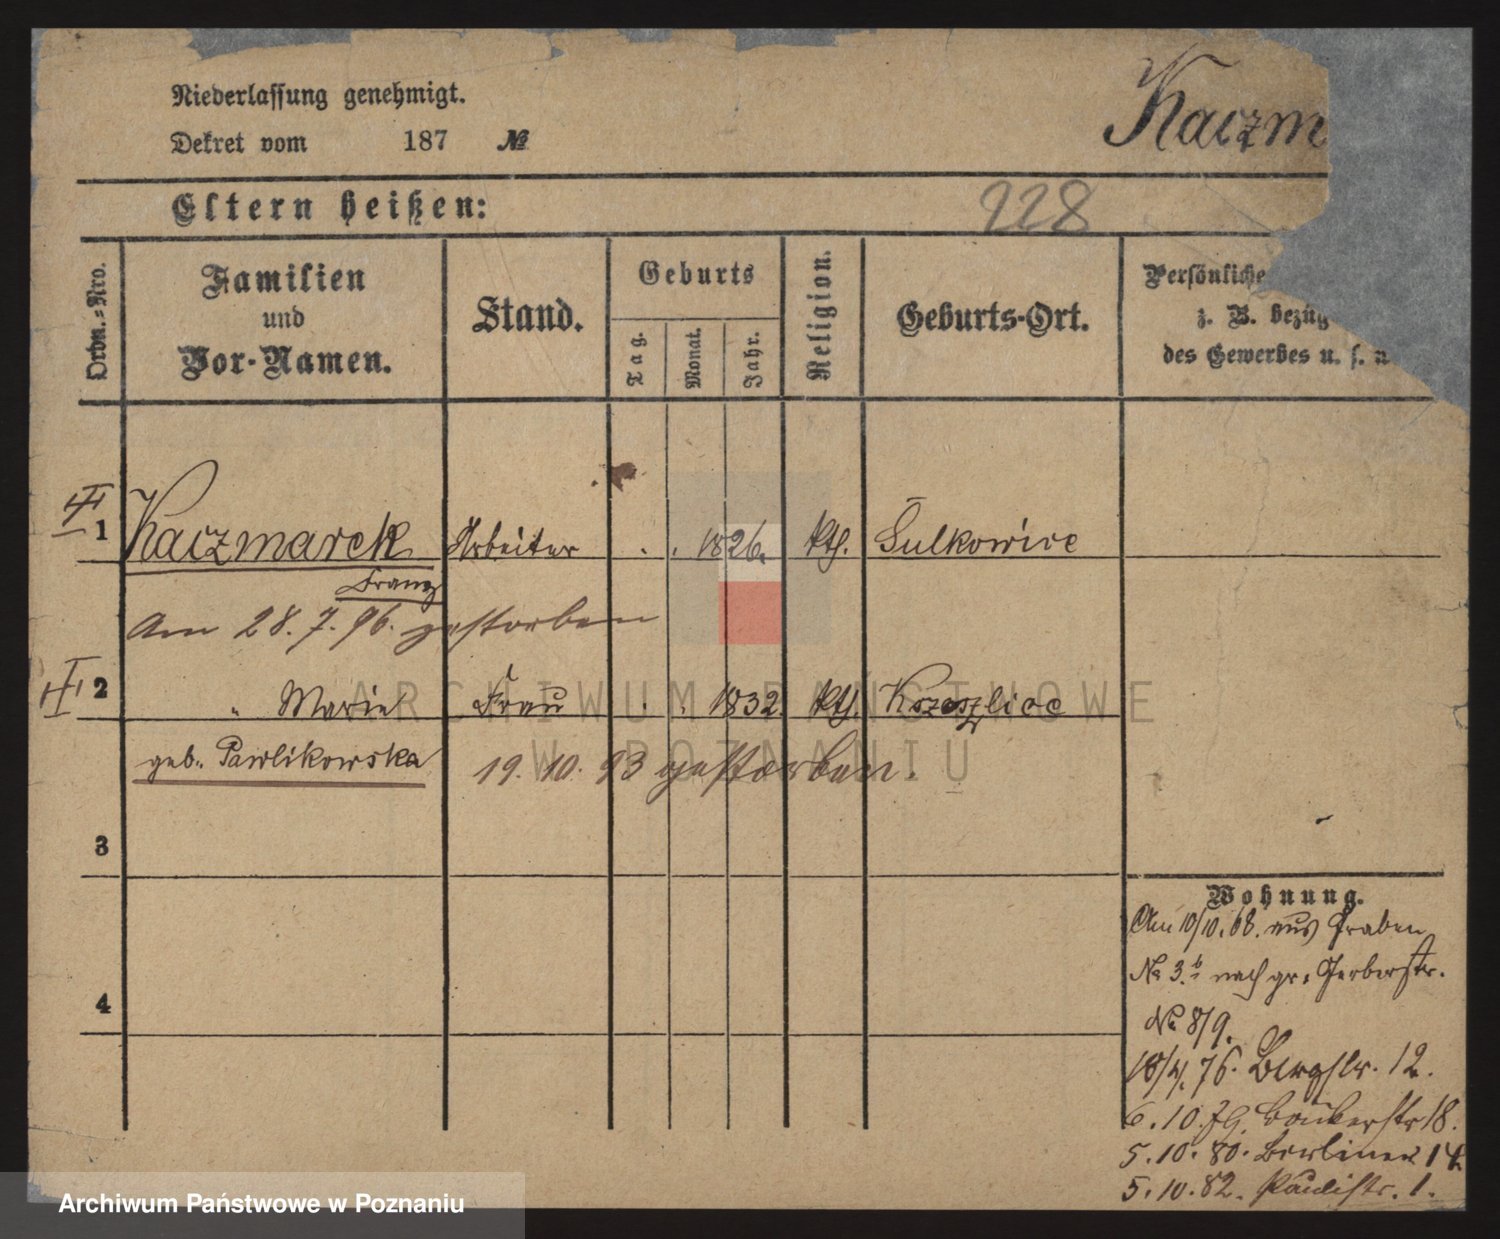 Niederlassung genehmigt.
Dekret vom 187 №
Kaczm
Eltern heißen:
228
Ordn.-Nro.
Familien
und
Vor-Namen.
Stand.
Geburts
Tag.
Monat.
Jahr.
Religion.
Geburts-Ort.
Persönliche
z. B. bezüg
des Gewerbes u. s. w
1 Kaczmarek Arbeiter . . 1826. kth. Sulkowice
Franz
Am 28.7.96. gestorben
2 " Marie Frau . . 1832 kth. Krzeszlice
geb. Pawlikowska 19.10.93 gestorben.
3
4
Wohnung.
Am 10/10.68. aus Graben
№ 3.b nach gr. Gerberstr.
№ 8/9.
18/4.76. Bergstr. 12.
6.10.79. Bäckerstr 18.
5.10.80. Berliner 14
5.10.82. Paulistr. 1.
ARCHIWUM PAŃSTWOWE
W POZNANIU
Archiwum Państwowe w Poznaniu